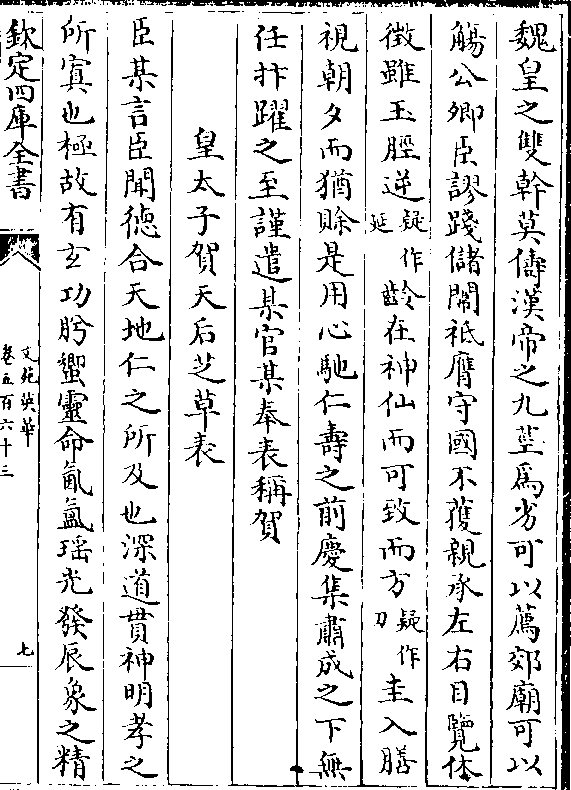 魏皇之雙幹莫儔漢帝之九莖爲劣可以薦郊廟可以
觴公卿臣謬踐儲闈祗膺守國不獲親承左右目覽休
徵雖玉脛逆疑作延齡在神仙而可致而方疑作刀圭入膳
視朝夕而猶賒是用心馳仁壽之前慶集肅成之下無
任抃躍之至謹遣某官某奉表稱賀
皇太子賀天后芝草表
臣某言臣聞德合天地仁之所及也深道貫神明孝之
所寘也極故有玄功肹蠁靈命氤氲瑶光發辰象之精
欽定四庫全書
文苑英華
卷五百六十三
七